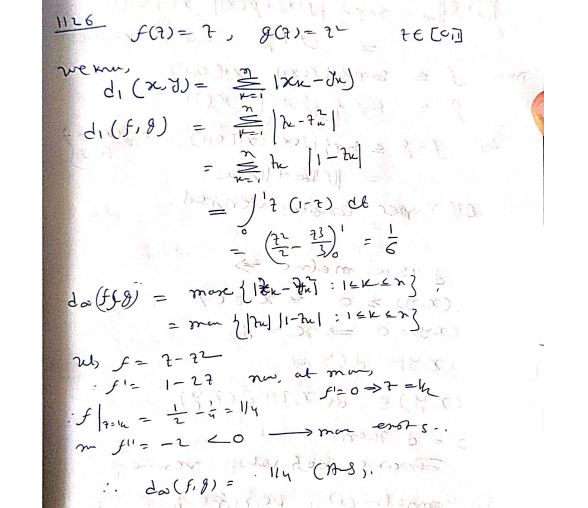 1126
f(z) = z , g(z) = z² z ∈ [0,1]
we know,
d₁(x,y) = ∑ₖ₌₁ⁿ |xₖ - yₖ|
∴ d₁(f,g) = ∑ₖ₌₁ⁿ |zₖ - zₖ²|
= ∑ₖ₌₁ⁿ zₖ |1 - zₖ|
= ∫₀¹ z (1-z) dt
= (z²/2 - z³/3)₀¹ = 1/6
d∞(f,g) = max {|zₖ - zₖ²| : 1≤k≤n}
= max {|zₖ| |1-zₖ| : 1≤k≤n}
f = z - z²
∴ f' = 1 - 2z now, at max,
f' = 0 ⇒ z = 1/2
∴ f|z=1/2 = 1/2 - 1/4 = 1/4
f'' = -2 < 0 ⟶ max exists..
∴ d∞(f,g) = 1/4 (Ans).